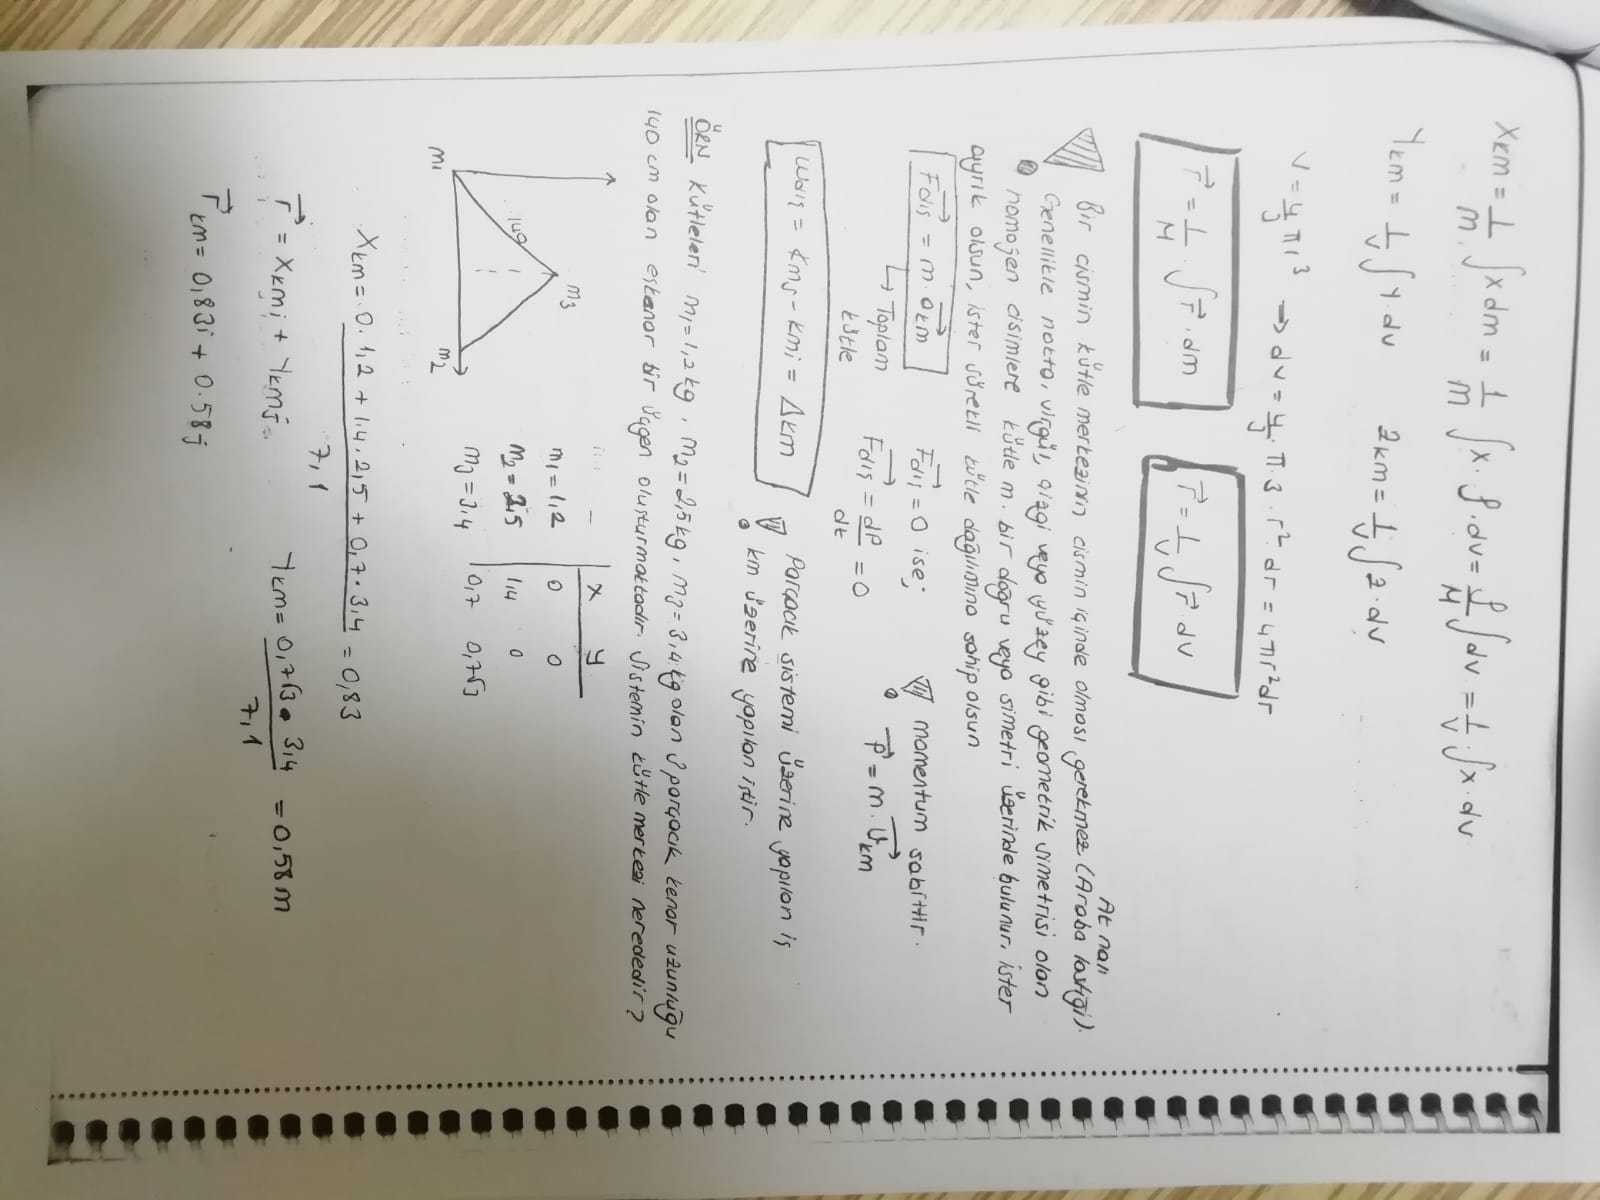 Xkm = 1/m ∫x dm = 1/m ∫x. ρ.dv = ρ/M ∫dv = 1/V . ∫x.dv
Ykm = 1/V ∫y.dv    zkm = 1/V ∫z.dv
V = 4/3 πr³ → dv = 4/3 . π.3.r².dr = 4πr²dr
r⃗ = 1/M . ∫r⃗.dm    r⃗ = 1/V ∫r⃗ dv
At nalı
Bir cismin kütle merkezinin cismin içinde olması gerekmez (Araba lastiği).
Genellikle nokta, virgül, çizgi veya yüzey gibi geometrik simetrisi olan
homojen cisimlere kütle m. bir doğru veya simetri üzerinde bulunur, ister
ayrık olsun, ister sürekli kütle dağılımına sahip olsun
Fdış = m.akm    Fdış = 0 ise;    ! momentum sabittir.
↳ Toplam kütle    Fdış = dP/dt = 0    P⃗ = m.Vkm
Wdış = kmf - kmi = Δkm    ! Parçacık sistemi üzerine yapılan iş
km üzerine yapılan iştir.
ÖRN Kütleleri m1=1,2kg, m2=2,5kg, m3=3,4kg olan 3 parçacık kenar uzunluğu
140 cm olan eşkenar bir üçgen oluşturmaktadır. Sistemin kütle merkezi nerededir?
x y
m3
m1 = 1,2    0    0
140    m2 = 2,5    1,4    0
m3 = 3,4    0,7    0,7√3
m1    m2
Xkm = 0.1,2 + 1.4.2,5 + 0,7.3,4 / 7,1 = 0,83
r⃗ = Xkmi + Ykmj    Ykm = 0,7√3 . 3,4 / 7,1 = 0,58m
r⃗km = 0,83i + 0.58j